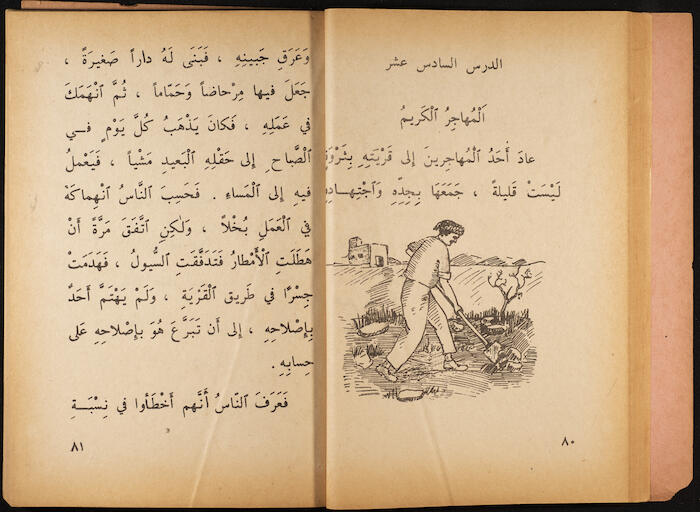 الدرس السادس عشر
اَلْمُهاجِرُ ٱلْكَريمُ
عادَ أَحَدُ ٱلْمُهاجِرينَ إِلى قَرْيَتِهِ بِثَرْوَةٍ
لَيْسَتْ قَليلَةً ، جَمَعَها بِجِدِّهِ وَٱجْتِهـادِهِ
٨٠
وَعَرَقِ جَبينِهِ ، فَبَنَى لَهُ داراً صَغيرَةً ،
جَعَلَ فيها مِرْحاضاً وَحَمّاماً ، ثُمَّ ٱنْهَمَكَ
في عَمَلِهِ ، فَكانَ يَذْهَبُ كُلَّ يَوْمٍ فــي
ٱلْصَّباحِ إِلى حَقْلِهِ ٱلْبَعيدِ مَشْياً ، فَيَعْمَلُ
فيهِ إِلى ٱلْمَساءِ . فَحَسِبَ ٱلنَّاسُ ٱنْهِماكَهُ
في ٱلْعَمَلِ بُخْلاً ، وَلٰكِنِ ٱتَّفَقَ مَرَّةً أَنْ
هَطَلَتِ ٱلْأَمْطارُ فَتَدَفَّقَتِ ٱلسُّيولُ ، فَهَدَمَتْ
جِسْرًا في طَريقِ ٱلْقَرْيَةِ ، وَلَمْ يَهْتَمَّ أَحَدٌ
بِإِصْلاحِهِ ، إِلى أَن تَبَرَّعَ هُوَ بِإِصْلاحِهِ عَلى
حِسابِهِ .
فَعَرَفَ ٱلنّاسُ أَنَّهم أَخْطَأوا في نِسْبَـــةِ
٨١